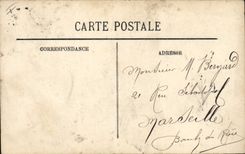 CARTE POSTALE
CORRESPONDANCE
ADRESSE
Monsieur M. Bérard
21 Rue
Marseille
Bouch. du Rhône